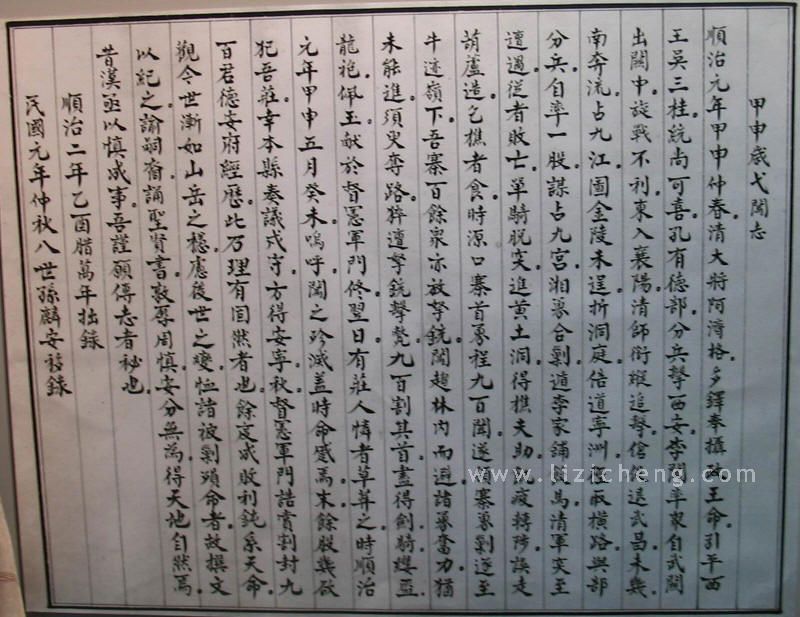 甲申歲弋闖志
順治元年甲申仲春清大將阿濟格多鐸奉攝政王命引平西
王吳三桂統尚可喜孔有德部分兵擊西安李闖率眾自武關
出關中旋戰不利東入襄陽清師銜蹤追擊倉惶遁武昌未幾
南奔流占九江圖金陵未逞折洞庭倍道寧洲 取橫路與部
分兵自率一股謀占九宮湘募合剿遁李家鋪 馬清軍突至
遭遇從者敗亡單騎脫突進黃土洞得樵夫助 疲轉陟誤走
葫蘆造乞樵者食時源口寨首募程九百聞遂 寨募剿逐至
牛迹嶺下吾寨百餘眾亦放拏銃闖趨林內而避諸募奮力猶
未能進須臾奪路猝遭拏銃擊斃九百割其首盡得劍騎縷盔
龍袍佩玉献於督憲軍門俟翌日有莊人憐者草葬之時順治
元年甲申五月癸未嗚呼闖之殄滅盖時命感焉末餘股幾欲
犯吾莊幸本縣奏議戍守方得安寧秋督憲軍門誥賞割封九
百君德安府經歷此乃理有固然者也餘寇成敗利鈍系天命
觀今世漸如山岳之穩慮後世之變恤諸被剿殞命者故撰文
以紀之諭嗣裔誦聖賢書敦厚周慎安分無為得天地自然焉
昔漢丞以慎成事吾謹願傳志者秘也
順治二年乙酉腊萬年拙錄
民國元年仲秋八世孫麟安移錄
www.lizicheng.com